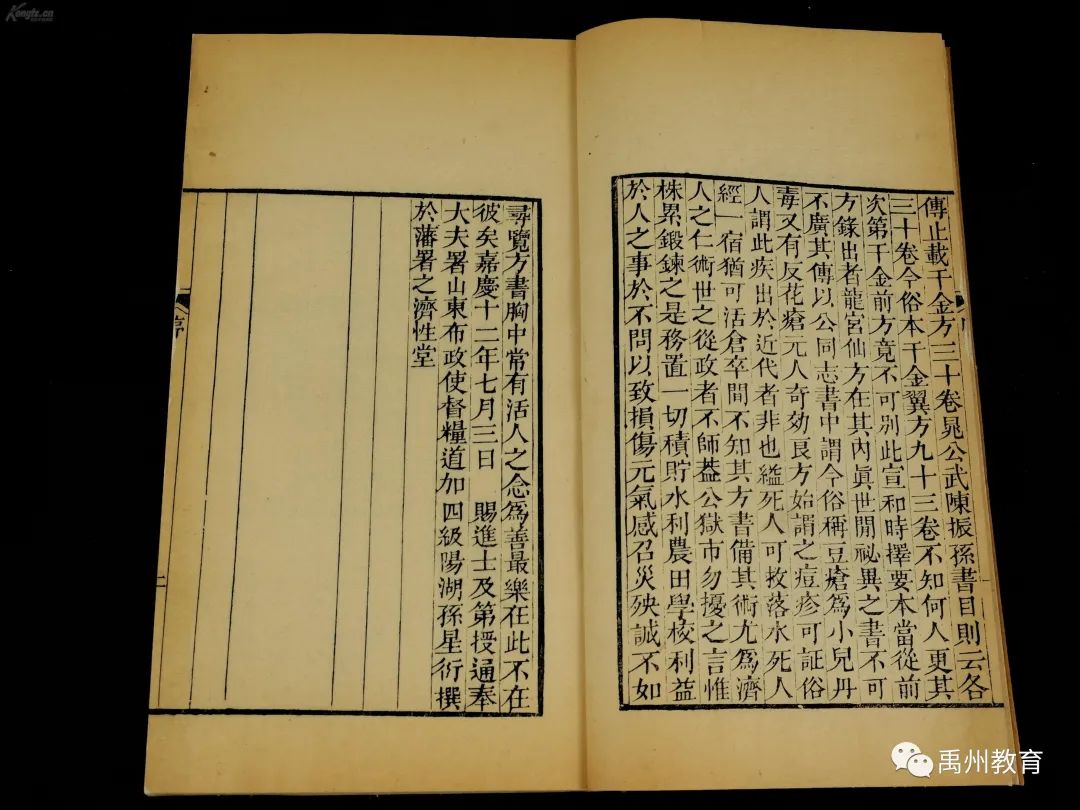 傳止載千金方三十卷晁公武陳振孫書目則云各
三十卷今俗本千金翼方九十三卷不知何人更其
次第千金前方竟不可別此宣和時擇要本當從前
方錄出者龍宮仙方在其內眞世閒祕異之書不可
不廣其傳以公同志書中謂今俗稱豆瘡爲小兒丹
毒又有反花瘡元人奇効良方始謂之痘疹可証俗
人謂此疾出於近代者非也縊死人可救落水死人
經一宿猶可活倉卒間不知其方書備其術尤爲濟
人之仁術世之從政者不師葢公獄市勿擾之言惟
株累鍛鍊之是務置一切積貯水利農田學校利益
於人之事於不問以致損傷元氣感召災殃誠不如
尋覽方書胸中常有活人之念爲善最樂在此不在
彼矣嘉慶十二年七月三日 賜進士及第授通奉
大夫署山東布政使督糧道加四級陽湖孫星衍撰
於藩署之濟性堂
序
二
Kongfz.cn
禹州教育